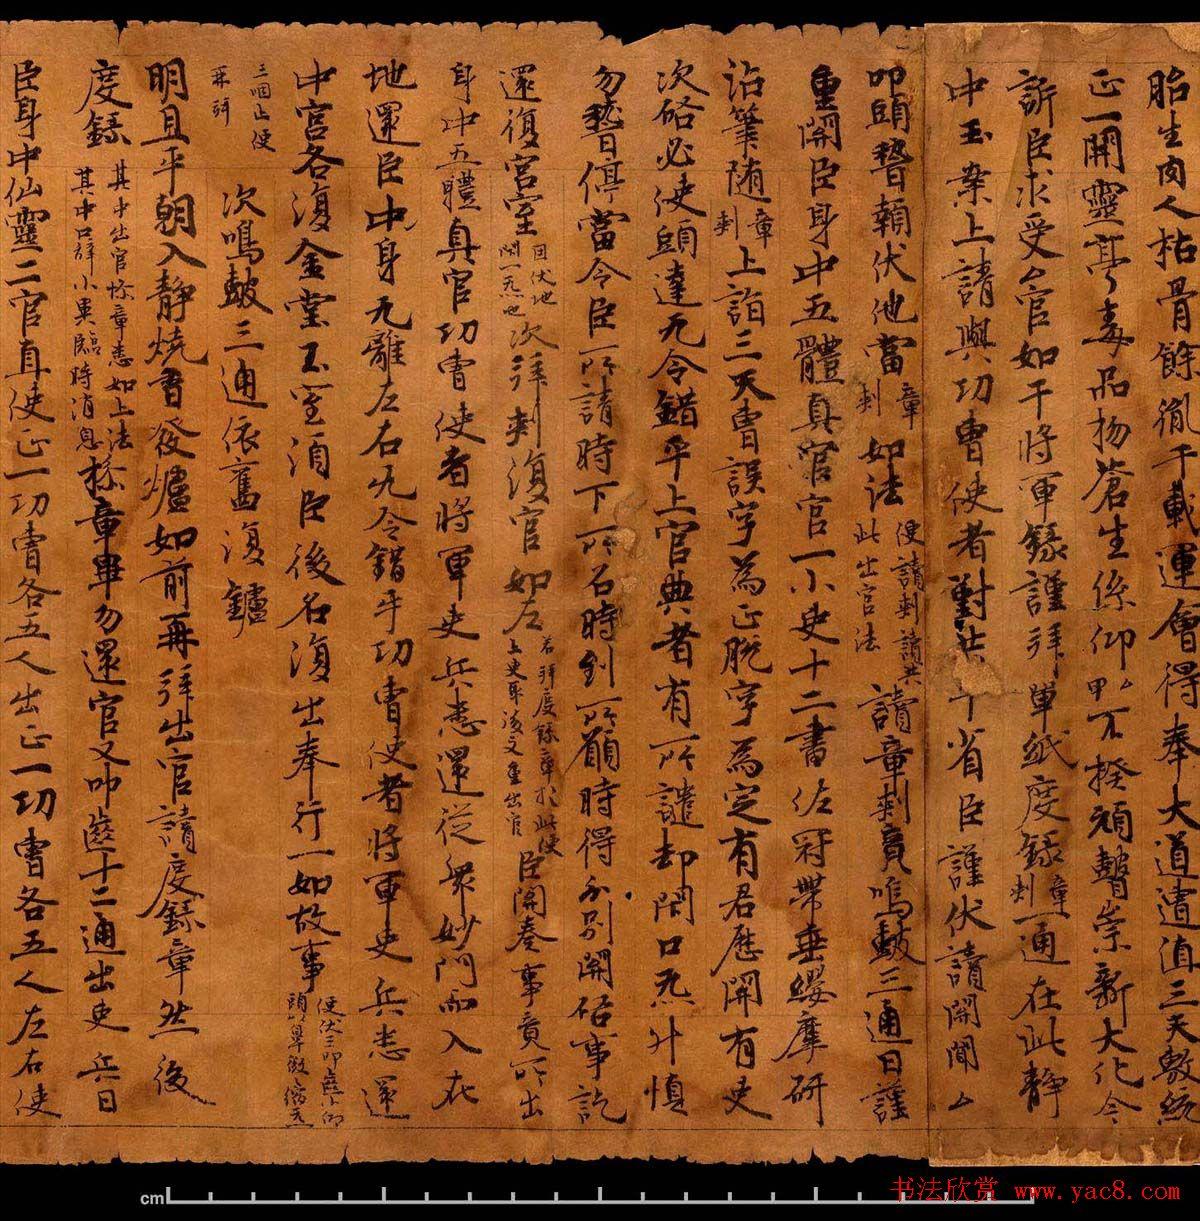 胎生肉人枯骨餘胤千載運會得奉大道遭值三天敷統
正一開靈亭毒品物蒼生係仰甲乙不揆頑瞽崇新大化今
訴臣求受么官如干將軍籙謹拜單紙度籙章刺一通在此靜
中玉案上請與功曹使者對共 省臣謹伏讀開聞么
叩頭瞽賴伏他當章刺如法便請刺讀其此出官法讀章刺竟鳴鼓三通曰謹
重開臣身中五體真官官一小吏十二書佐冠帶垂纓摩研
沾筆隨章刺上詣三天曹誤字為正脫字為定有君歷開有吏
次啟必使頭達无令錯乎上官典者有所譴却閇口炁升慎
勿暬停當令臣所請時下所召時到所願時得分別開啟事訖
還復宮室回伏地閇一炁也次拜刺復官如左若拜度籙章於此便上吏取後文重出官臣開奏事竟所出
身中五體真官功曹使者將軍吏兵悉還從眾妙門而入在
地還臣中身无離左右无令錯乎功曹使者將軍吏兵悉還
中宮各復金堂玉室須臣後名復出奉行一如故事便伏三叩仰頭以鼻微縮炁
三咽止便再拜 次鳴鼓三通依舊復鑪
明旦平朝入靜燒香發爐如前再拜出官請度籙章然後
度籙其中出官操章悉如上法其中口辞小異臨時消息操章畢勿還官又叩齒十二通出吏兵曰
臣身中仙靈二官直使正一功曹各五人出正一功曹各五人左右使
cm
书法欣赏 www.yac8.com